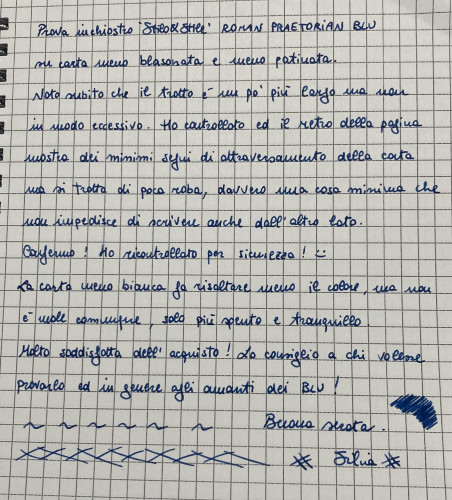 Prova inchiostro "Stilo&Stile" ROMAN PRAETORIAN BLU
su carta meno blasonata e meno patinata.
Noto subito che il tratto è un po' più largo ma non
in modo eccessivo. Ho controllato ed il retro della pagina
mostra dei minimi segni di attraversamento della carta
ma si tratta di poca roba, davvero una cosa minima che
non impedisce di scrivere anche dall'altro lato.
Confermo! Ho ricontrollato per sicurezza! :)
La carta meno bianca fa risaltare meno il colore, ma non
è male comunque, solo più spento e tranquillo.
Molto soddisfatta dell'acquisto! Lo consiglio a chi volesse
provarlo ed in genere agli amanti dei BLU!
Buona serata.
Silvia